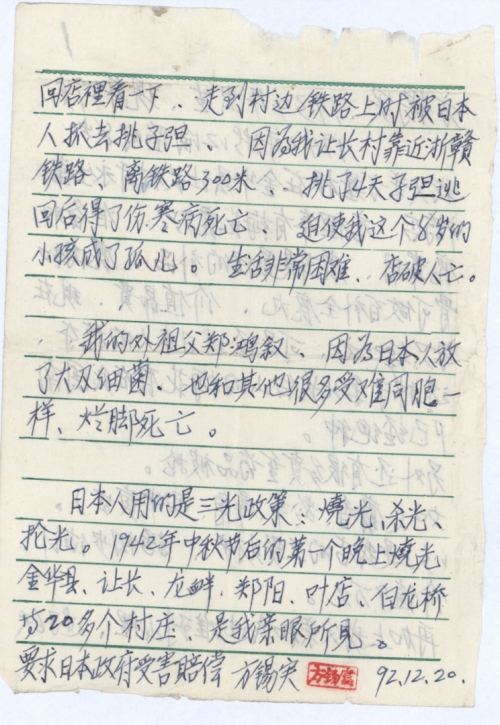 1
回店裡看一下、走到村边铁路上时被日本
人抓去挑子弹、因為我让长村靠近浙赣
铁路、离铁路300米、挑了4天子弹逃
回后得了伤寒病死亡、迫使我这个8岁的
小孩成了孤儿。生活非常困难、店破人亡。
我的外祖父郑鸿叙、因為日本人放
了大及细菌、也和其他很多受难同胞一
样、烂脚死亡。
日本人用的是三光政策：燒光、杀光、
抢光。1942年中秋节后的第一个晚上燒光
金华县、让长、龙畔、郑阳、叶店、白龙桥
等20多个村庄、是我亲眼所見。
要求日本政府受害賠偿 方锡 92.12.20.